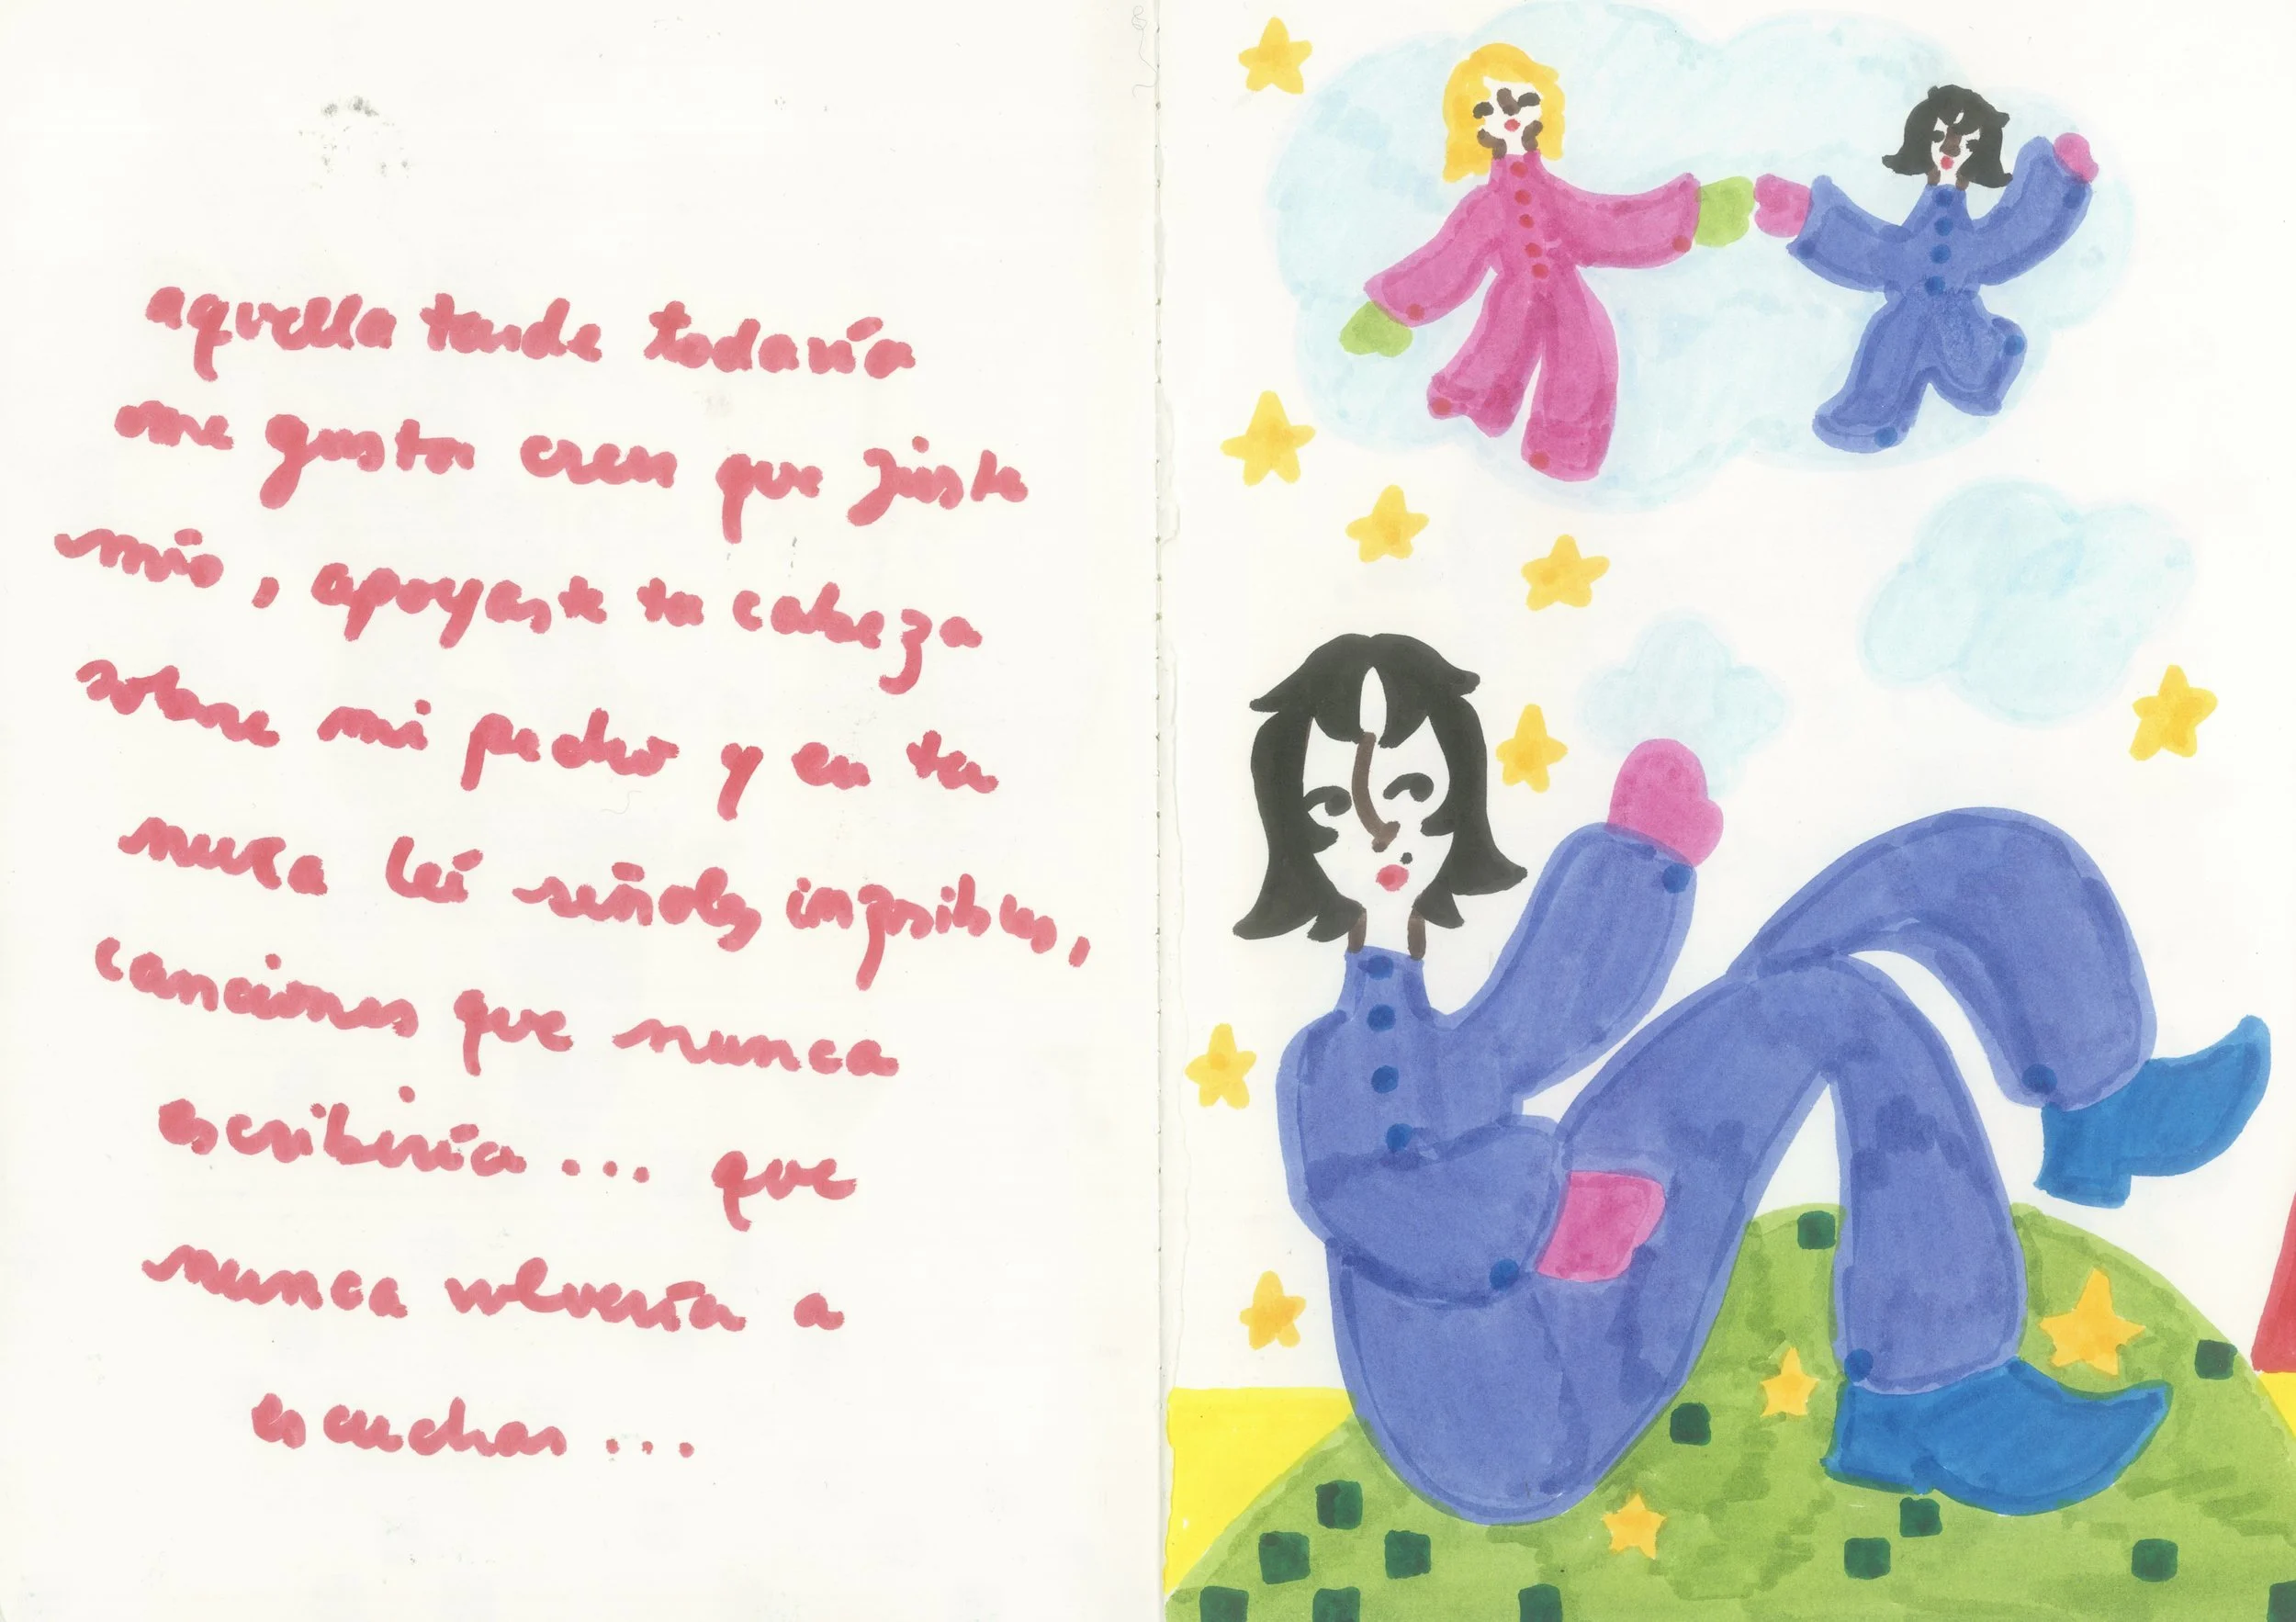 aquella tarde todavía
me gusta creer que juste
mío, apoyaste tu cabeza
sobre mi pecho y en tu
nuca leí señales imposibles,
canciones que nunca
escribiría... que
nunca volvería a
escuchar...